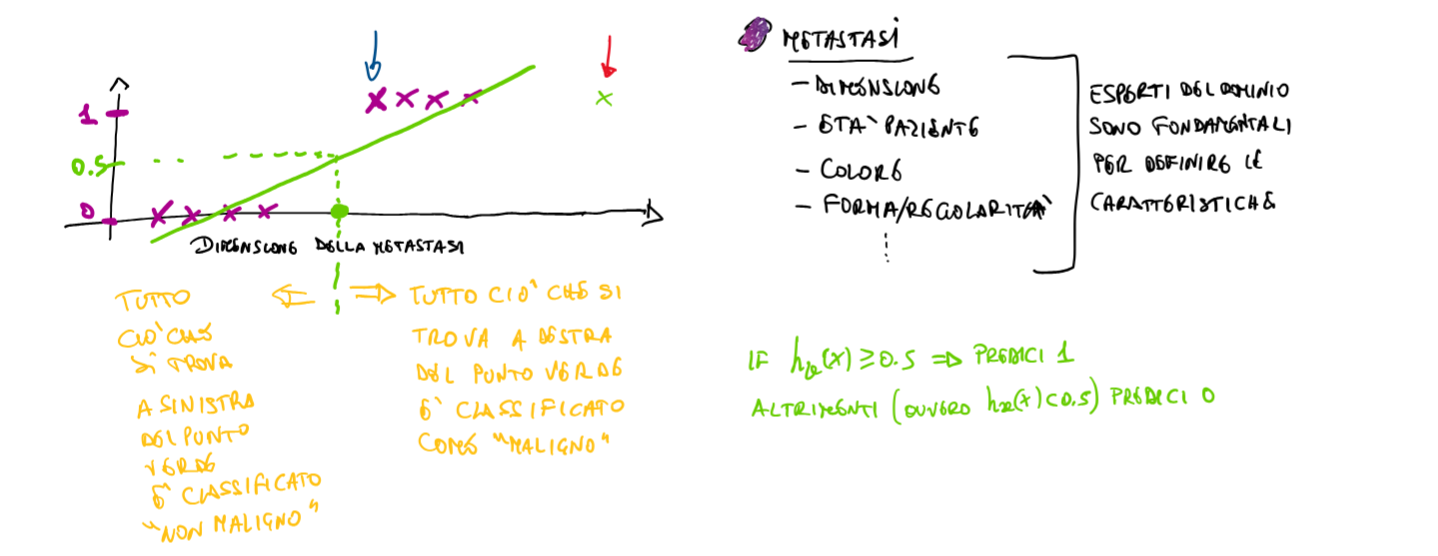 1
0.5
0
DIMENSIONE DELLA METASTASI
TUTTO
CIÒ CHE
SI TROVA
A SINISTRA
DEL PUNTO
VERDE
È CLASSIFICATO
"NON MALIGNO"
TUTTO CIÒ CHE SI
TROVA A DESTRA
DEL PUNTO VERDE
È CLASSIFICATO
COME "MALIGNO"
METASTASI
- DIMENSIONE
- ETÀ PAZIENTE
- COLORE
- FORMA/REGOLARITÀ
ESPERTI DEL DOMINIO
SONO FONDAMENTALI
PER DEFINIRE LE
CARATTERISTICHE
IF hθ(x) ≥ 0.5 ⇒ PREDICI 1
ALTRIMENTI (OVVERO hθ(x) < 0.5) PREDICI 0